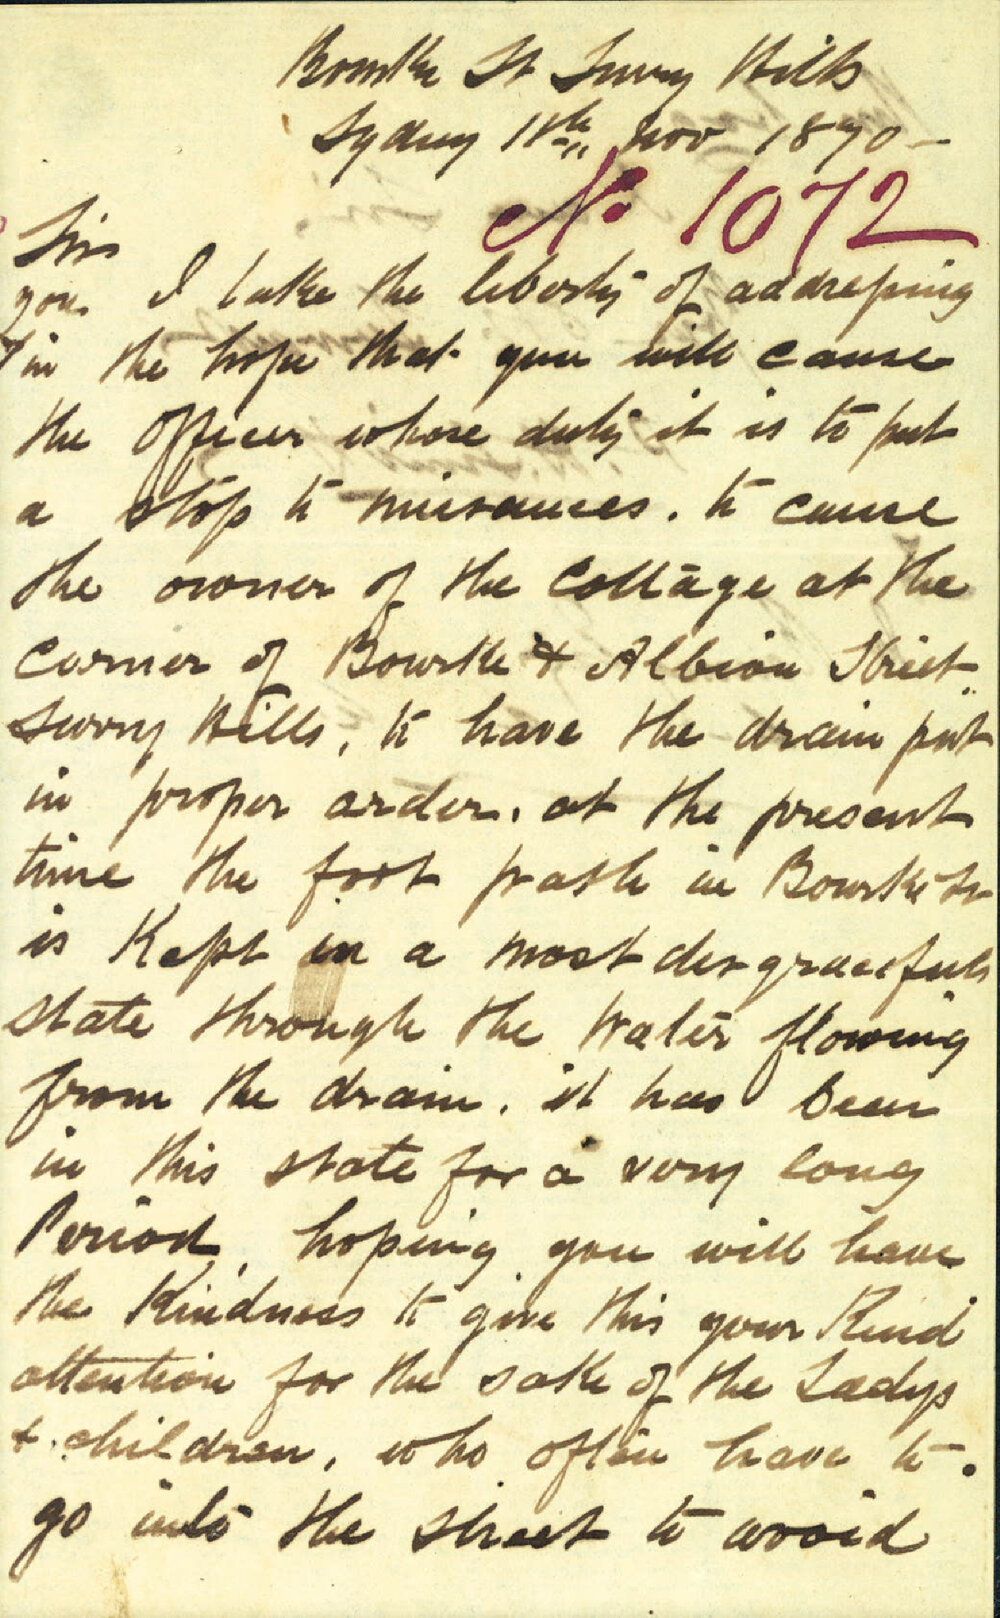 Bourke St Surry Hills
Sydney 11th Nov 1870 -
No 1072
Sir
you I take the liberty of addressing
in the hope that you will cause
the Officer whose duty it is to put
a stop to nuisances. to cause
the owner of the Cottage at the
corner of Bourke & Albion Street
Surry Hills, to have the drain put
in proper order. at the present
time the foot path in Bourke St
is Kept in a most disgracefull
state through the Water flowing
from the drain. it has been
in this state for a very long
Period, hoping you will have
the Kindness to give this your Kind
attention for the sake of the Ladys
& children, who often have to
go into the street to avoid